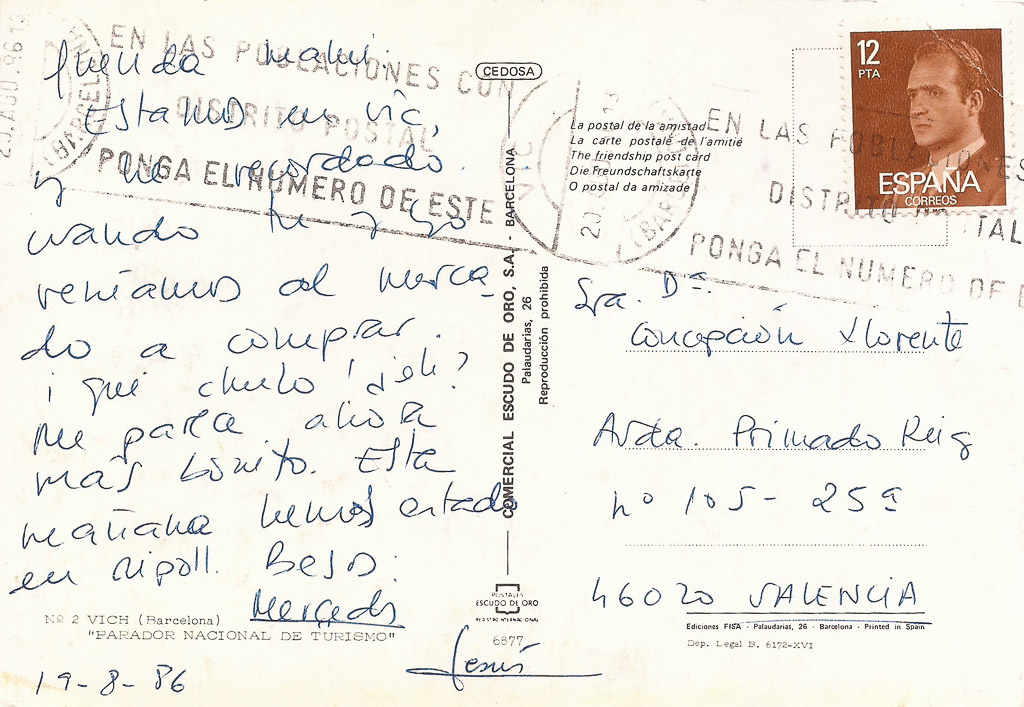 Querida mami:
Estamos en Vic,
y he recordado
cuando tu y yo
veníamos al merca-
do a comprar.
¡qué chulo! ¿eh?
Me parece ahora
más bonito. Esta
mañana hemos estado
en Ripoll. Besos:
Mercedes
Jesús
Nº 2 VICH (Barcelona)
"PARADOR NACIONAL DE TURISMO"
19-8-86
EN LAS POBLACIONES CON
DISTRITO POSTAL
PONGA EL NUMERO DE ESTE
20 AGO. 86 13
CEDOSA
COMERCIAL ESCUDO DE ORO, S.A. - BARCELONA
Palaudarias, 26
Reproducción prohibida
POSTALES
ESCUDO DE ORO
REGISTRO INTERNACIONAL
6877
La postal de la amistad
La carte postale de l'amitié
The friendship post card
Die Freundschaftskarte
O postal da amizade
VIC
(BARC
EN LAS POBLACIONES
DISTRITO POSTAL
PONGA EL NUMERO DE E
12
PTA
ESPAÑA
CORREOS
Sra. Dª.
Concepción Llorente
Avda. Primado Reig
nº 105 - 25ª
46020 VALENCIA
Ediciones FISA - Palaudarias, 26 - Barcelona - Printed in Spain
Dep. Legal B. 6172-XVI